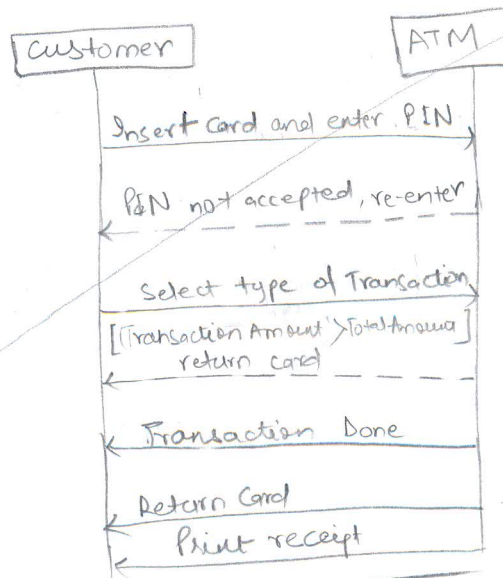 Customer
ATM
Insert Card and enter PIN
PIN not accepted, re-enter
Select type of Transaction
[Transaction Amount > Total Amoua]
return card
Transaction Done
Return Card
Print receipt